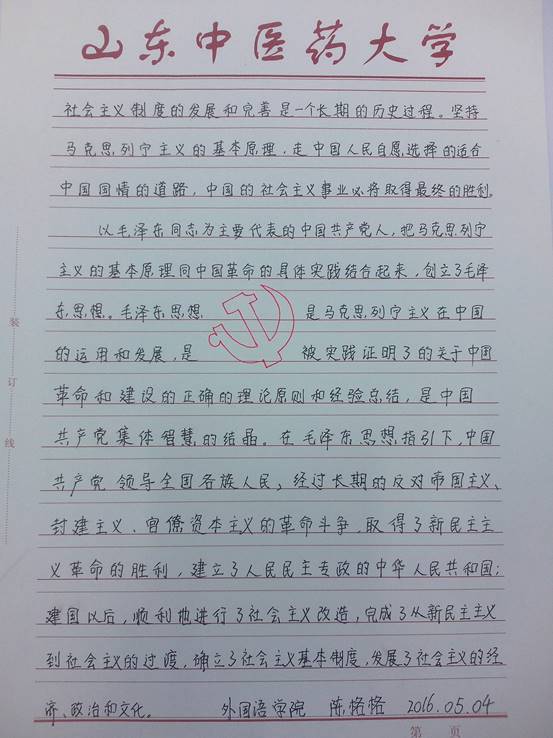 山东中医药大学
社会主义制度的发展和完善是一个长期的历史过程。坚持
马克思列宁主义的基本原理，走中国人民自愿选择的适合
中国国情的道路，中国的社会主义事业必将取得最终的胜利。
以毛泽东同志为主要代表的中国共产党人，把马克思列宁
主义的基本原理同中国革命的具体实践结合起来，创立了毛泽
东思想。毛泽东思想 是马克思列宁主义在中国
的运用和发展，是 被实践证明了的关于中国
革命和建设的正确的理论原则和经验总结，是中国
共产党集体智慧的结晶。在毛泽东思想指引下，中国
共产党 领导全国各族人民，经过长期的反对帝国主义、
封建主义、官僚资本主义的革命斗争，取得了新民主主
义革命的胜利，建立了人民民主专政的中华人民共和国；
建国以后，顺利地进行了社会主义改造，完成了从新民主主义
到社会主义的过渡，确立了社会主义基本制度，发展了社会主义的经
济、政治和文化。 外国语学院 陈格格 2016.05.04
装
订
线
第 页